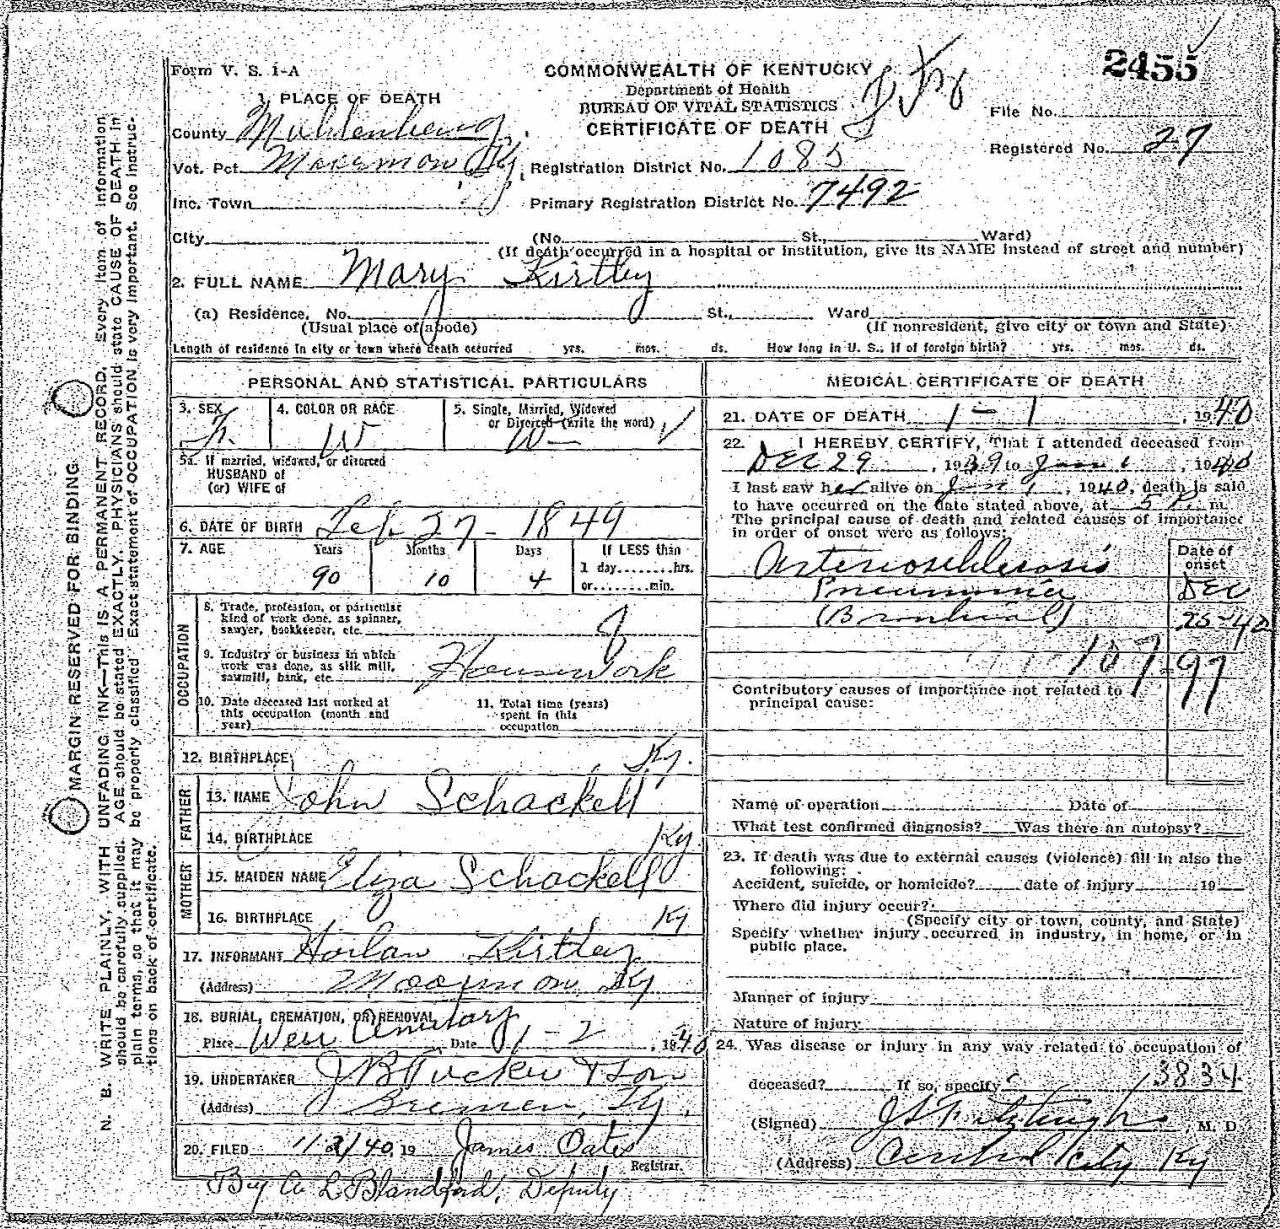 2455
Form V. S. 1-A
COMMONWEALTH OF KENTUCKY
Department of Health
BUREAU OF VITAL STATISTICS
CERTIFICATE OF DEATH
File No.
Registered No. 27
1. PLACE OF DEATH
County Muhlenberg
Vot. Pct. Moorman Ky
Registration District No. 1085
Inc. Town
Primary Registration District No. 7492
City (No. St., Ward)
(If death occurred in a hospital or institution, give its NAME instead of street and number)
2. FULL NAME Mary Kirtley
(a) Residence, No. St., Ward
(Usual place of abode) (If nonresident, give city or town and State)
Length of residence in city or town where death occurred yrs. mos. ds. How long in U. S., if of foreign birth? yrs. mos. ds.
PERSONAL AND STATISTICAL PARTICULARS
3. SEX F. 4. COLOR OR RACE W 5. Single, Married, Widowed or Divorced (write the word) W
5a. If married, widowed, or divorced
HUSBAND of
(or) WIFE of
6. DATE OF BIRTH Feb 27 - 1849
7. AGE Years Months Days If LESS than
90 10 4 1 day hrs.
or min.
OCCUPATION
8. Trade, profession, or particular
kind of work done, as spinner,
sawyer, bookkeeper, etc.
9. Industry or business in which
work was done, as silk mill,
sawmill, bank, etc. Housework
10. Date deceased last worked at
this occupation (month and
year)
11. Total time (years)
spent in this
occupation
12. BIRTHPLACE Ky.
FATHER
13. NAME John Schackell
14. BIRTHPLACE Ky
MOTHER
15. MAIDEN NAME Eliza Schackell
16. BIRTHPLACE Ky
17. INFORMANT Harlan Kirtley
(Address) Moorman, Ky
18. BURIAL, CREMATION, OR REMOVAL
Place Weir Cemetary Date 1 - 2, 1940
19. UNDERTAKER J B Tucker & Son
(Address) Bremen, Ky.
20. FILED 1/3/40, 19 James Oates
Registrar.
By A L Blandford, Deputy
MEDICAL CERTIFICATE OF DEATH
21. DATE OF DEATH 1 - 1, 1940
22. I HEREBY CERTIFY, That I attended deceased from
Dec 29, 1939 to Jan 1, 1940
I last saw her alive on Jan 1, 1940, death is said
to have occurred on the date stated above, at 5 P. m.
The principal cause of death and related causes of importance
in order of onset were as follows:
Date of
onset
Arteriosclerosis
Pneumonia Dec
(Bronchial) 25-40
107-97
Contributory causes of importance not related to
principal cause:
Name of operation Date of
What test confirmed diagnosis? Was there an autopsy?
23. If death was due to external causes (violence) fill in also the
following:
Accident, suicide, or homicide? date of injury 19
Where did injury occur?
(Specify city or town, county, and State)
Specify whether injury occurred in industry, in home, or in
public place.
Manner of injury
Nature of injury
24. Was disease or injury in any way related to occupation of
deceased? If so, specify 3834
(Signed) J S Fitzhugh, M. D.
(Address) Central City Ky
MARGIN RESERVED FOR BINDING
N. B. WRITE PLAINLY, WITH UNFADING INK—THIS IS A PERMANENT RECORD. Every item of information
should be carefully supplied. AGE should be stated EXACTLY. PHYSICIANS should state CAUSE OF DEATH in
plain terms, so that it may be properly classified. Exact statement of OCCUPATION is very important. See instruc-
tions on back of certificate.